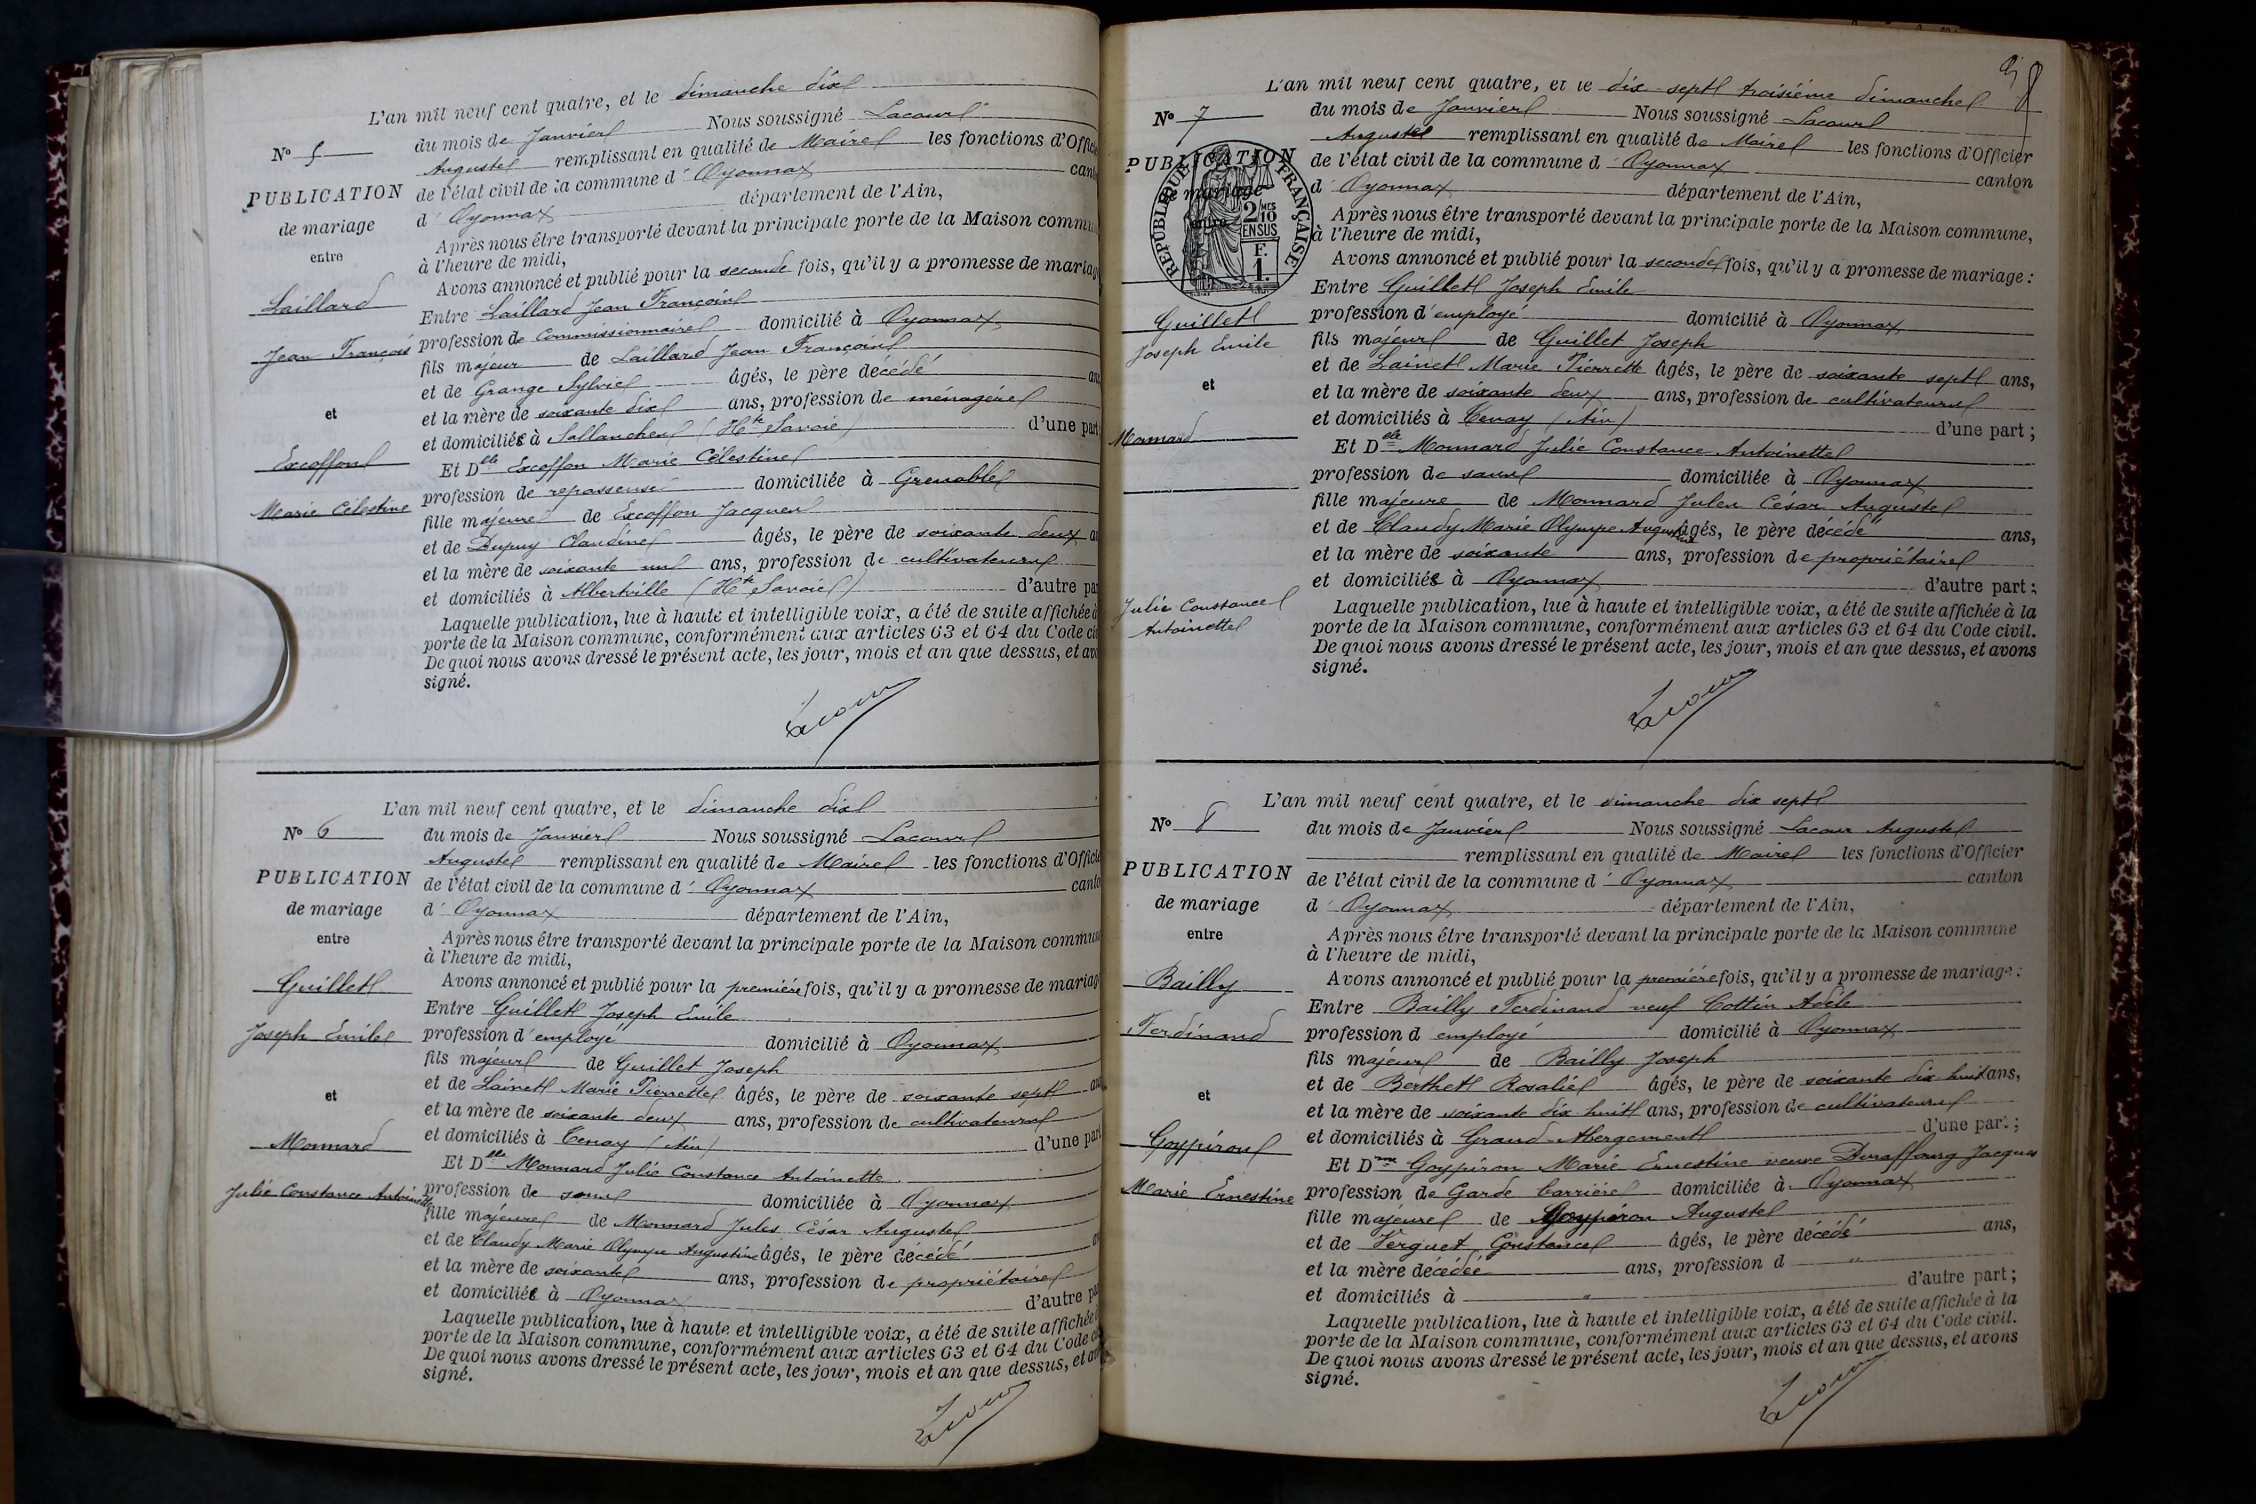 L'an mil neuf cent quatre, et le dimanche dix
N° 5
du mois de Janvier Nous soussigné Lacour
Auguste remplissant en qualité de Maire les fonctions d'Offici
PUBLICATION
de mariage
entre
de l'état civil de la commune d' Oyonnax cant
d' Oyonnax département de l'Ain,
Après nous être transporté devant la principale porte de la Maison commu
à l'heure de midi,
Avons annoncé et publié pour la seconde fois, qu'il y a promesse de mariag
Laillard
Jean François
et
Excoffon
Marie Célestine
Entre Laillard Jean François
profession de Commissionnaire domicilié à Oyonnax
fils majeur de Laillard Jean François
et de Grange Sylvie âgés, le père décédé ans
et la mère de soixante dix ans, profession de ménagère
et domiciliés à Sallanches (Hte Savoie) d'une part
Et Dlle Excoffon Marie Célestine
profession de repasseuse domiciliée à Grenoble
fille majeure de Excoffon Jacques
et de Dupuy Claudine âgés, le père de soixante deux a
et la mère de soixante un ans, profession de cultivateurs
et domiciliés à Albertville (Hte Savoie) d'autre par
Laquelle publication, lue à haute et intelligible voix, a été de suite affichée à
porte de la Maison commune, conformément aux articles 63 et 64 du Code ci
De quoi nous avons dressé le présent acte, les jour, mois et an que dessus, et avo
signé.
Lacour
L'an mil neuf cent quatre, et le dimanche dix
N° 6
du mois de Janvier Nous soussigné Lacour
Auguste remplissant en qualité de Maire les fonctions d'Officie
PUBLICATION
de mariage
entre
de l'état civil de la commune d' Oyonnax canto
d' Oyonnax département de l'Ain,
Après nous être transporté devant la principale porte de la Maison commun
à l'heure de midi,
Avons annoncé et publié pour la première fois, qu'il y a promesse de mariag
Guillet
Joseph Emile
et
Monnard
Julie Constance Antoinette
Entre Guillet Joseph Emile
profession d'employé domicilié à Oyonnax
fils majeur de Guillet Joseph
et de Lainet Marie Pierrette âgés, le père de soixante sept an
et la mère de soixante deux ans, profession de cultivateurs
et domiciliés à Tenay (Ain) d'une part
Et Dlle Monnard Julie Constance Antoinette
profession de sans domiciliée à Oyonnax
fille majeure de Monnard Jules César Auguste
et de Claudy Marie Olympe Augustine âgés, le père décédé a
et la mère de soixante ans, profession de propriétaire
et domiciliée à Oyonnax d'autre pa
Laquelle publication, lue à haute et intelligible voix, a été de suite affichée
porte de la Maison commune, conformément aux articles 63 et 64 du Code ci
De quoi nous avons dressé le présent acte, les jour, mois et an que dessus, et av
signé.
Lacour
L'an mil neuf cent quatre, et le dix-sept troisième dimanche
N° 7
du mois de Janvier Nous soussigné Lacour
Auguste remplissant en qualité de Maire les fonctions d'Officier
PUBLICATION
de mariage
entre
RÉPUBLIQUE FRANÇAISE
2/10 MES
EN SUS
F.
1.
de l'état civil de la commune d' Oyonnax canton
d' Oyonnax département de l'Ain,
Après nous être transporté devant la principale porte de la Maison commune,
à l'heure de midi,
Avons annoncé et publié pour la seconde fois, qu'il y a promesse de mariage :
Guillet
Joseph Emile
et
Monnard
Julie Constance
Antoinette
Entre Guillet Joseph Emile
profession d'employé domicilié à Oyonnax
fils majeur de Guillet Joseph
et de Lainet Marie Pierrette âgés, le père de soixante sept ans,
et la mère de soixante deux ans, profession de cultivateurs
et domiciliés à Tenay (Ain) d'une part ;
Et Dlle Monnard Julie Constance Antoinette
profession de sans domiciliée à Oyonnax
fille majeure de Monnard Jules César Auguste
et de Claudy Marie Olympe Augustine âgés, le père décédé ans,
et la mère de soixante ans, profession de propriétaire
et domiciliée à Oyonnax d'autre part ;
Laquelle publication, lue à haute et intelligible voix, a été de suite affichée à la
porte de la Maison commune, conformément aux articles 63 et 64 du Code civil.
De quoi nous avons dressé le présent acte, les jour, mois et an que dessus, et avons
signé.
Lacour
L'an mil neuf cent quatre, et le dimanche dix sept
N° 8
du mois de Janvier Nous soussigné Lacour Auguste
remplissant en qualité de Maire les fonctions d'Officier
PUBLICATION
de mariage
entre
de l'état civil de la commune d' Oyonnax canton
d' Oyonnax département de l'Ain,
Après nous être transporté devant la principale porte de la Maison commune
à l'heure de midi,
Avons annoncé et publié pour la première fois, qu'il y a promesse de mariage :
Bailly
Ferdinand
et
Goypiron
Marie Ernestine
Entre Bailly Ferdinand veuf Cottin Adèle
profession d employé domicilié à Oyonnax
fils majeur de Bailly Joseph
et de Berthet Rosalie âgés, le père de soixante dix huit ans,
et la mère de soixante dix huit ans, profession de cultivateurs
et domiciliés à Grand-Abergement d'une part ;
Et Dme Goypiron Marie Ernestine veuve Duraffourg Jacques
profession de Garde Barrière domiciliée à Oyonnax
fille majeure de Goypiron Auguste
et de Verguet Constance âgés, le père décédé ans,
et la mère décédée ans, profession d "
et domiciliés à " d'autre part ;
Laquelle publication, lue à haute et intelligible voix, a été de suite affichée à la
porte de la Maison commune, conformément aux articles 63 et 64 du Code civil.
De quoi nous avons dressé le présent acte, les jour, mois et an que dessus, et avons
signé.
Lacour